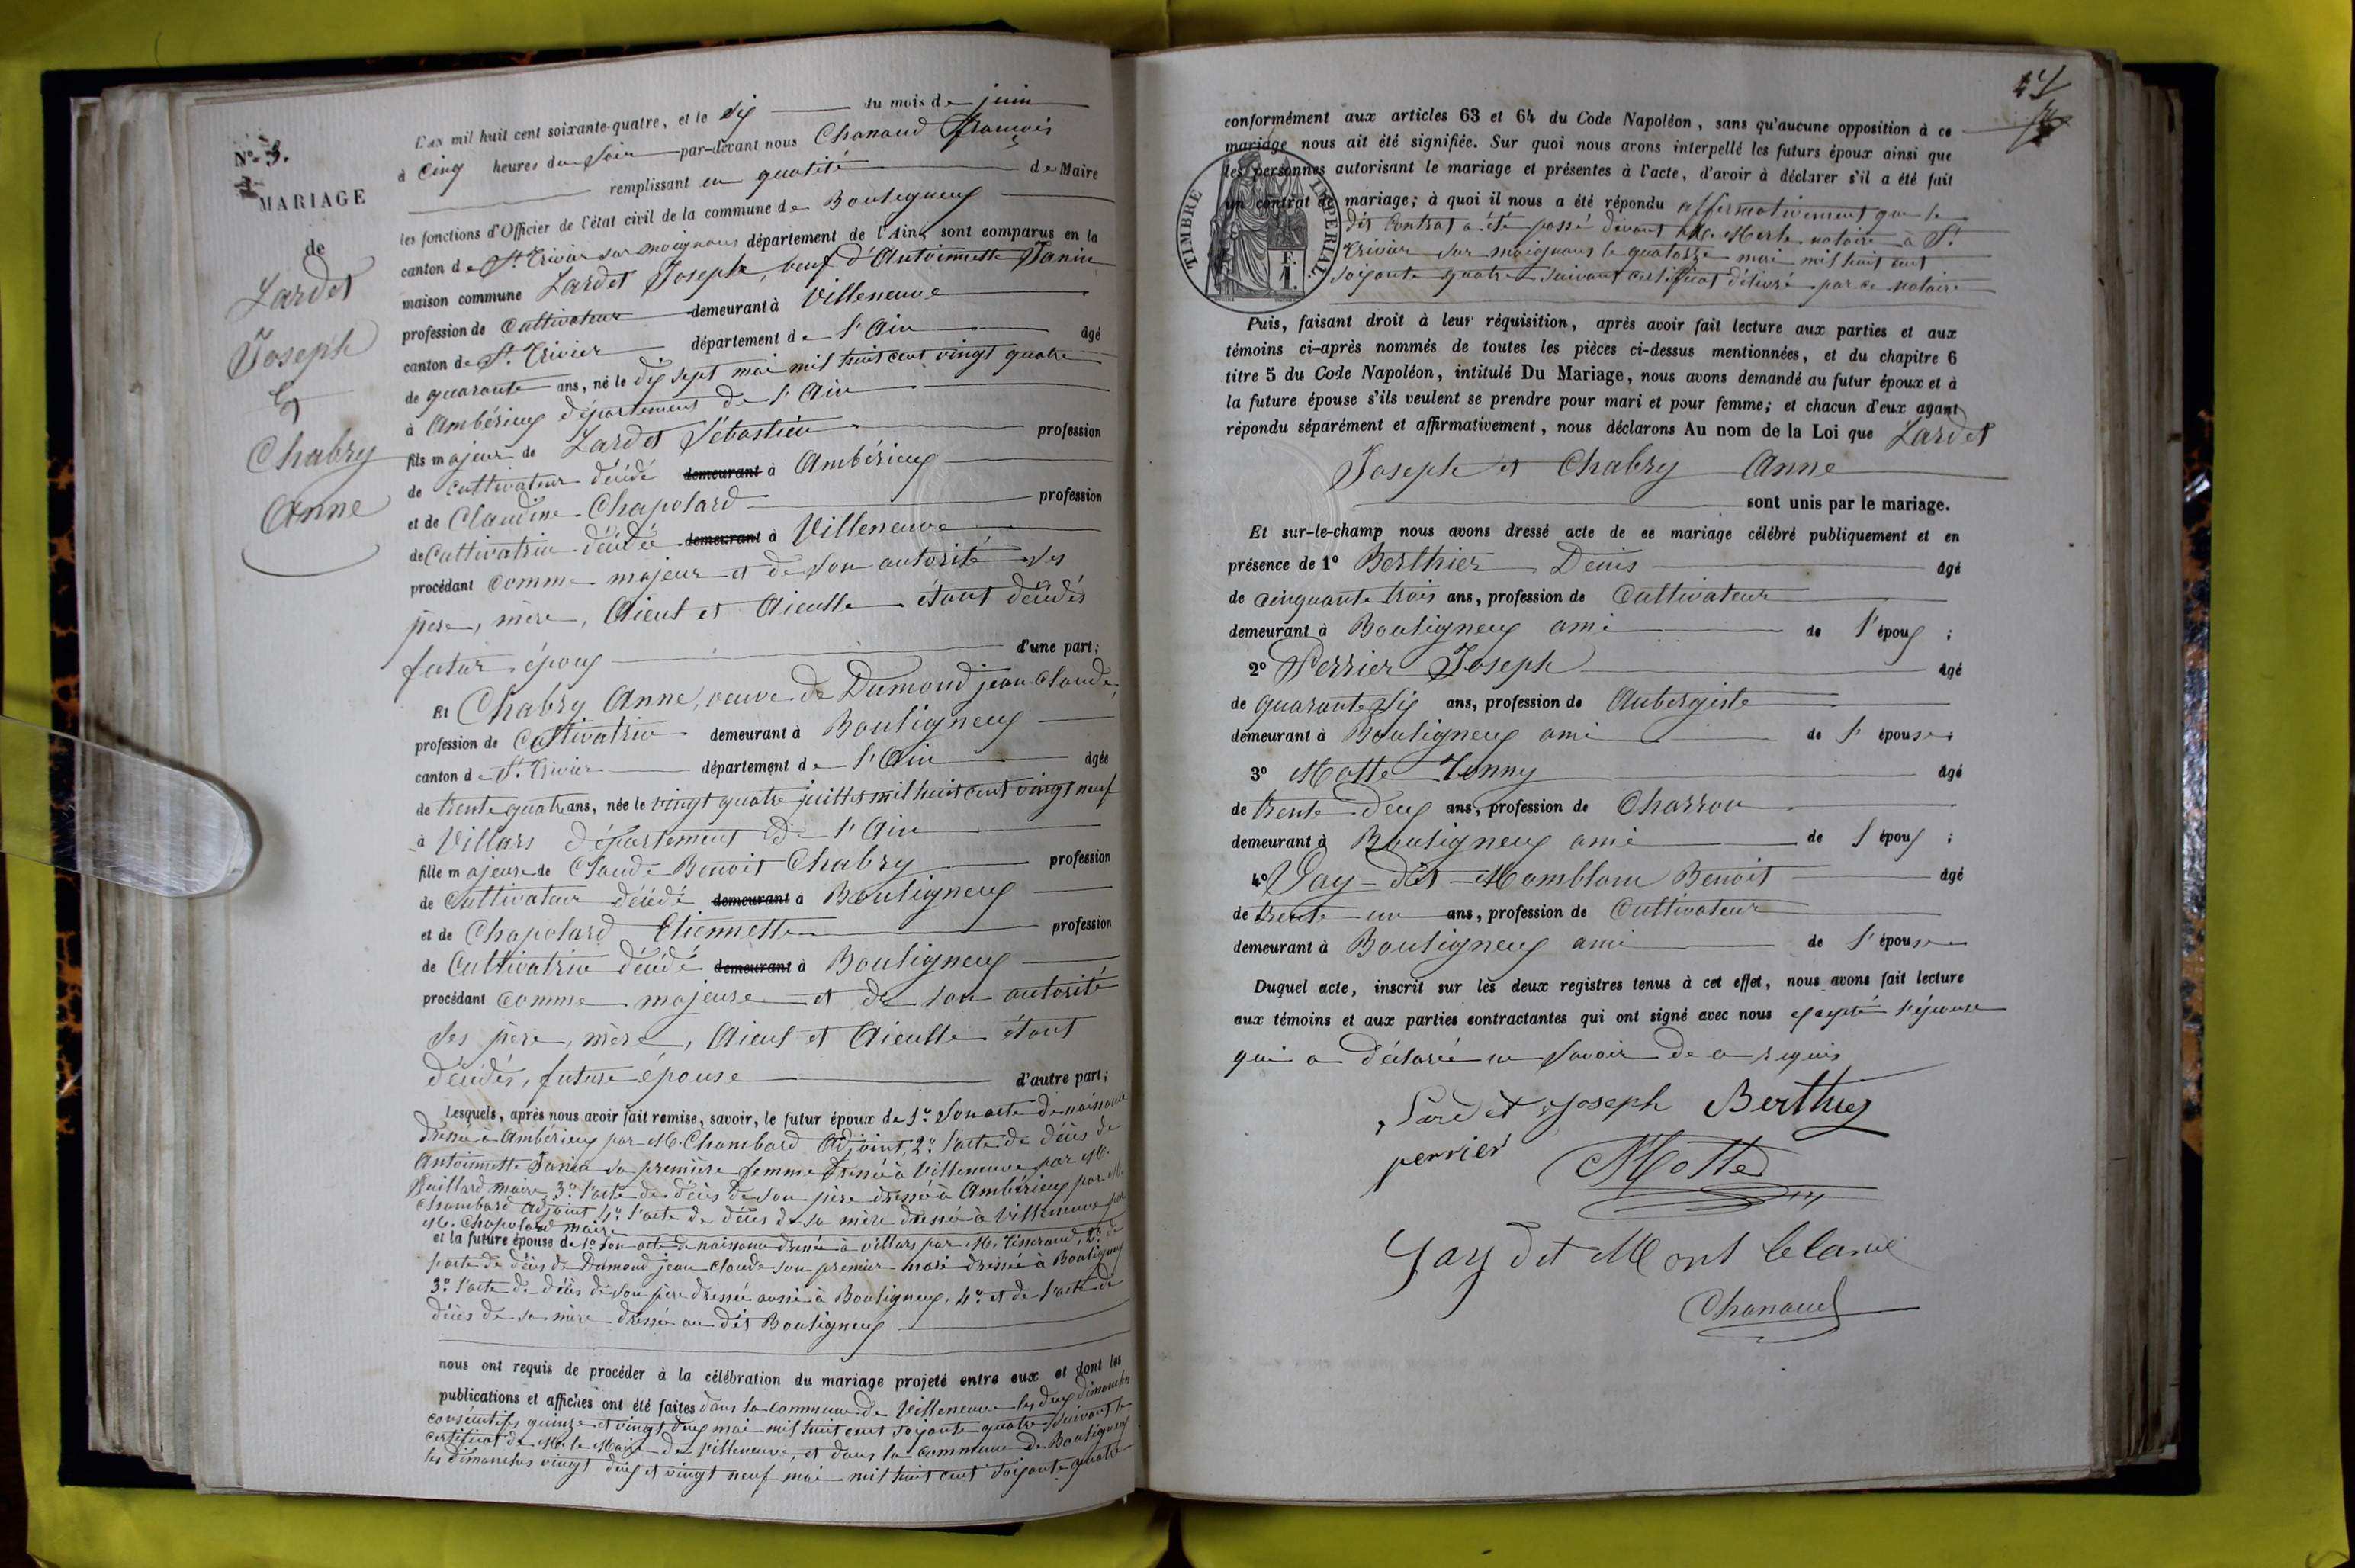 N° 3.
MARIAGE
de
Lardet
Joseph
Et
Chabry
Anne
L'an mil huit cent soixante-quatre, et le dix du mois de juin
à Cinq heures du Soir par-devant nous Chanaud François
remplissant en qualité de Maire
les fonctions d'Officier de l'état civil de la commune de Bouligneux
canton de St. Trivier sur moignans département de l'Ain, sont comparus en la
maison commune Lardet Joseph, veuf d'Antoinette Janin
profession de Cultivateur demeurant à Villeneuve
canton de St. Trivier département de l'Ain âgé
de quarante ans, né le dix sept mai mil huit cent vingt quatre
à Ambérieux département de l'Ain
fils majeur de Lardet Sébastien profession
de Cultivateur décédé demeurant à Ambérieux
et de Claudine Chapolard profession
de Cultivatrice décédée demeurant à Villeneuve
procédant comme majeur et de son autorité ses
père, mère, Aieul et Aieulle étant décédés
futur époux d'une part;
Et Chabry Anne, veuve de Dumond jean Claude,
profession de Cultivatrice demeurant à Bouligneux
canton de St. Trivier département de l'Ain âgée
de trente quatre ans, née le vingt quatre juillet mil huit cent vingt neuf
à Villars département de l'Ain
fille majeure de Claude Benoit Chabry profession
de Cultivateur décédé demeurant à Bouligneux
et de Chapolard Etiennette profession
de Cultivatrice décédé demeurant à Bouligneux
procédant comme majeure et de son autorité
ses père, mère, Aieul et Aieulle étant
décédés, future épouse d'autre part;
Lesquels, après nous avoir fait remise, savoir, le futur époux de 1° son acte de naissance
dressé à Ambérieux par M. Chambard Adjoint, 2° l'acte de décès de
Antoinette Janin sa première femme dressé à Villeneuve par M.
maire, 3° l'acte de décès de son père dressé à Ambérieux par M.
Chambard Adjoint 4° l'acte de décès de sa mère dressé à Villeneuve par
M. Chapolard maire
et la future épouse de 1° son acte de naissance dressé à Villars par M. 2° de
l'acte de décès de Dumond jean Claude son premier mari dressé à Bouligneux
3° l'acte de décès de son père dressé aussi à Bouligneux, 4° et de l'acte de
décès de sa mère dressé au dit Bouligneux
nous ont requis de procéder à la célébration du mariage projeté entre eux et dont les
publications et affiches ont été faites dans la commune de Villeneuve les deux dimanches
consécutifs quinze et vingt deux mai mil huit cent soixante quatre suivant le
certificat de M. le Maire de Villeneuve, et dans la commune de Bouligneux
les dimanches vingt deux et vingt neuf mai mil huit cent soixante quatre
conformément aux articles 63 et 64 du Code Napoléon, sans qu'aucune opposition à ce
mariage nous ait été signifiée. Sur quoi nous avons interpellé les futurs époux ainsi que
les personnes autorisant le mariage et présentes à l'acte, d'avoir à déclarer s'il a été fait
un contrat de mariage; à quoi il nous a été répondu affirmativement que le
dit Contrat a été passé devant Me. Merle notaire à St.
Trivier sur moignans le quatorze mai mil huit cent
soixante quatre suivant certificat délivré par ce notaire
TIMBRE IMPERIAL
F.
1.
Puis, faisant droit à leur réquisition, après avoir fait lecture aux parties et aux
témoins ci-après nommés de toutes les pièces ci-dessus mentionnées, et du chapitre 6
titre 5 du Code Napoléon, intitulé Du Mariage, nous avons demandé au futur époux et à
la future épouse s'ils veulent se prendre pour mari et pour femme; et chacun d'eux ayant
répondu séparément et affirmativement, nous déclarons Au nom de la Loi que Lardet
Joseph et Chabry Anne
sont unis par le mariage.
Et sur-le-champ nous avons dressé acte de ce mariage célébré publiquement et en
présence de 1° Berthier Denis âgé
de cinquante trois ans, profession de Cultivateur
demeurant à Bouligneux ami de l'époux ;
2° Perrier Joseph âgé
de quarante six ans, profession de Aubergiste
demeurant à Bouligneux ami de l'épouse;
3° Motte Tonny âgé
de trente deux ans, profession de Charron
demeurant à Bouligneux ami de l'époux ;
4° Gay dit Momblanc Benoit âgé
de trente un ans, profession de Cultivateur
demeurant à Bouligneux ami de l'épouse
Duquel acte, inscrit sur les deux registres tenus à cet effet, nous avons fait lecture
aux témoins et aux parties contractantes qui ont signé avec nous excepté l'épouse
qui a déclaré ne savoir de ce requis
Lardet Joseph Berthier
perrier Motte
Gay dit Mont blanc
Chanaud